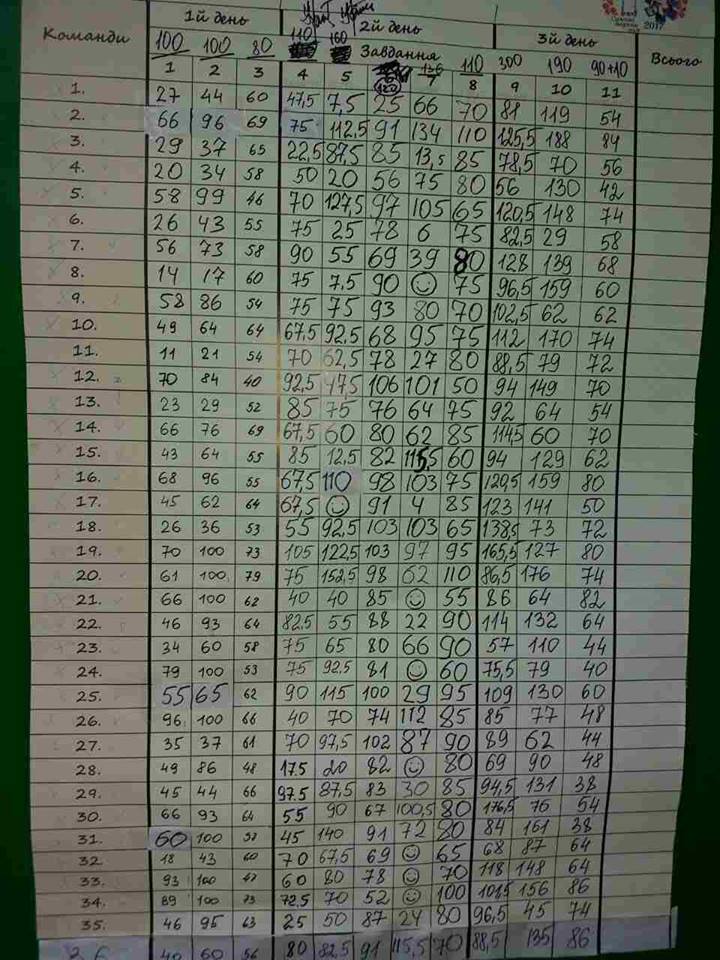 Команди 1й день 2й день 3й день Всього
100 100 80 110 160 Завдання 120 136 110 300 190 90+10
1 2 3 4 5 7 8 9 10 11
1. 27 44 60 47,5 7,5 25 66 70 81 119 54
2. 66 96 69 75 112,5 91 134 110 125,5 188 84
3. 29 37 65 22,5 87,5 85 13,5 85 78,5 70 56
4. 20 34 58 50 20 56 75 80 56 130 42
5. 58 99 46 70 127,5 97 105 65 120,5 148 74
6. 26 43 55 75 25 78 6 75 82,5 29 58
7. 56 73 58 90 55 69 39 80 128 139 68
8. 14 17 60 75 7,5 90 ☺ 75 96,5 159 60
9. 58 86 54 75 75 93 80 70 102,5 62 62
10. 49 64 64 67,5 92,5 68 95 75 112 170 74
11. 11 21 54 70 62,5 78 27 80 88,5 79 72
12. 70 84 40 92,5 47,5 106 101 50 94 149 70
13. 23 29 52 85 75 76 64 75 92 64 54
14. 66 76 69 67,5 60 80 62 85 114,5 60 70
15. 43 64 55 85 12,5 82 115,5 60 94 129 62
16. 68 96 55 67,5 110 98 103 75 120,5 159 80
17. 45 62 64 67,5 ☺ 91 4 85 123 141 50
18. 26 36 53 55 92,5 103 103 65 138,5 73 72
19. 70 100 73 105 122,5 103 97 95 165,5 127 80
20. 61 100 79 75 152,5 98 62 110 86,5 176 74
21. 66 100 62 40 40 85 ☺ 55 86 64 82
22. 46 93 64 82,5 55 88 22 90 114 132 64
23. 34 60 58 75 65 80 66 90 57 110 44
24. 79 100 53 75 92,5 81 ☺ 60 75,5 79 40
25. 55 65 62 90 115 100 29 95 109 130 60
26. 96 100 66 40 70 74 112 85 85 77 48
27. 35 37 61 70 97,5 102 87 90 89 62 44
28. 49 86 48 17,5 20 82 ☺ 80 69 90 48
29. 45 44 66 97,5 87,5 83 30 85 94,5 131 38
30. 66 93 64 55 90 67 100,5 80 176,5 76 54
31. 60 100 45 140 91 72 80 84 161 38
32. 18 43 60 70 67,5 69 ☺ 65 68 87 64
33. 93 100 60 80 78 ☺ 70 118 148 64
34. 89 100 73 72,5 70 52 ☺ 100 101,5 156 86
35. 46 95 63 25 50 87 24 80 96,5 45 74
36 40 60 56 80 82,5 91 115,5 70 88,5 135 86
2017